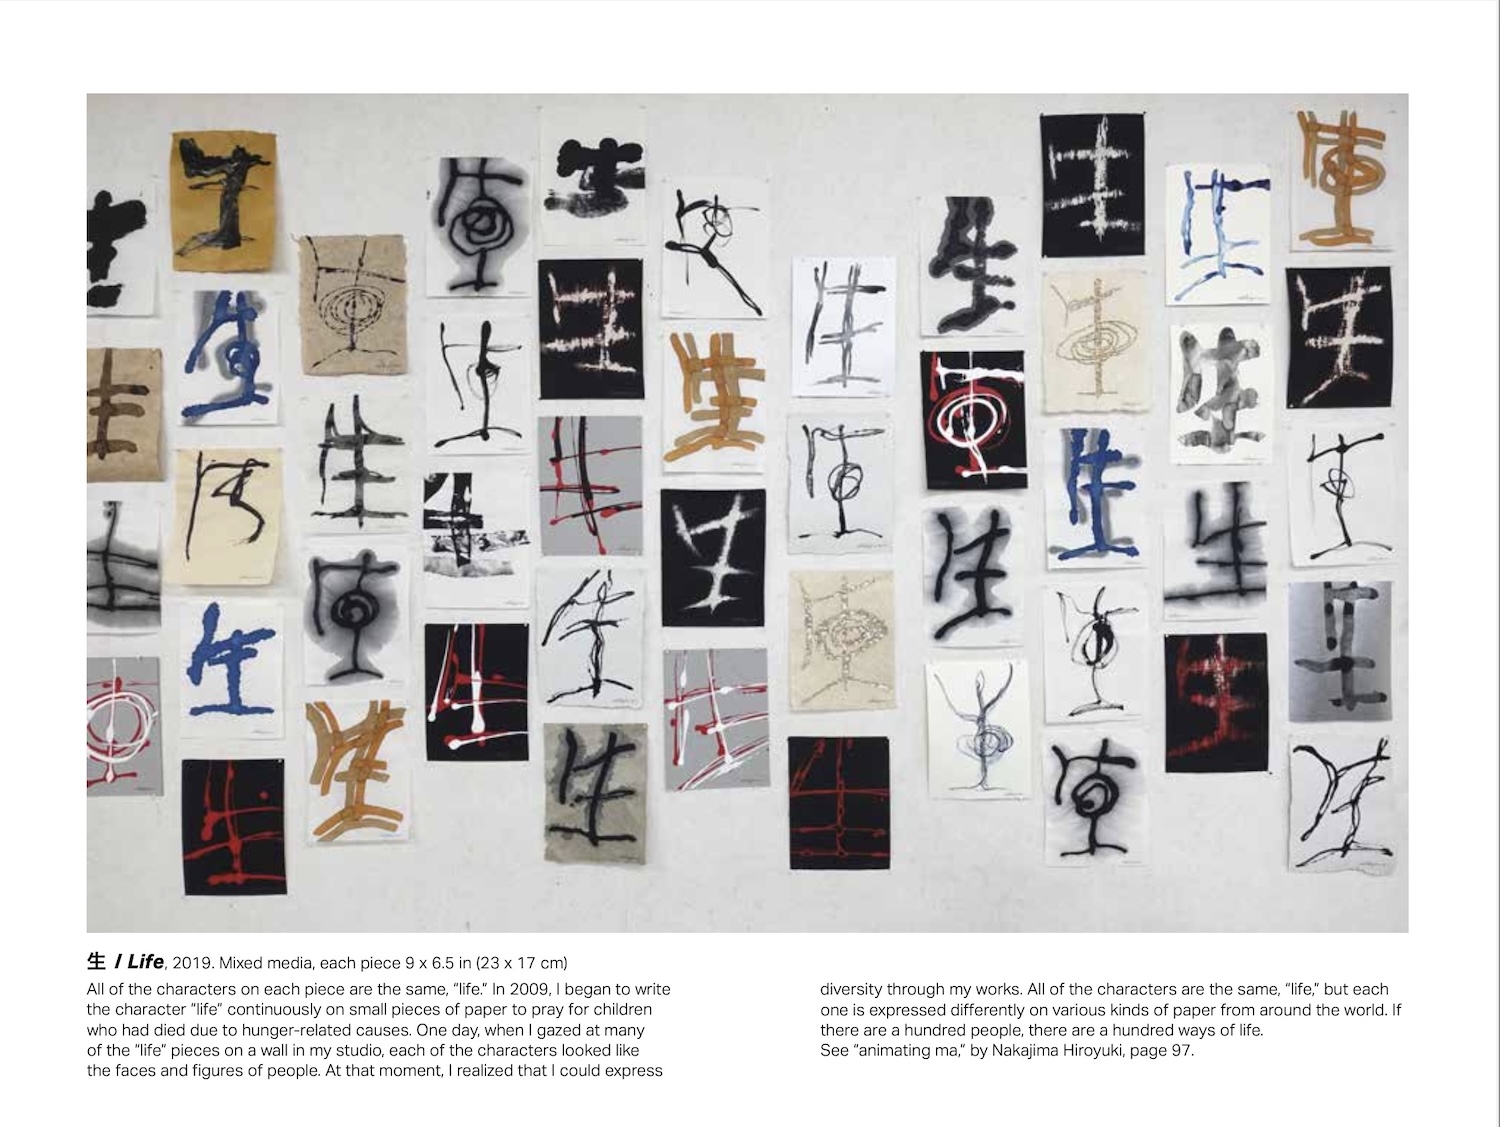 生 / Life, 2019. Mixed media, each piece 9 x 6.5 in (23 x 17 cm)
All of the characters on each piece are the same, “life.” In 2009, I began to write
the character “life” continuously on small pieces of paper to pray for children
who had died due to hunger-related causes. One day, when I gazed at many
of the “life” pieces on a wall in my studio, each of the characters looked like
the faces and figures of people. At that moment, I realized that I could express
diversity through my works. All of the characters are the same, “life,” but each
one is expressed differently on various kinds of paper from around the world. If
there are a hundred people, there are a hundred ways of life.
See “animating ma,” by Nakajima Hiroyuki, page 97.